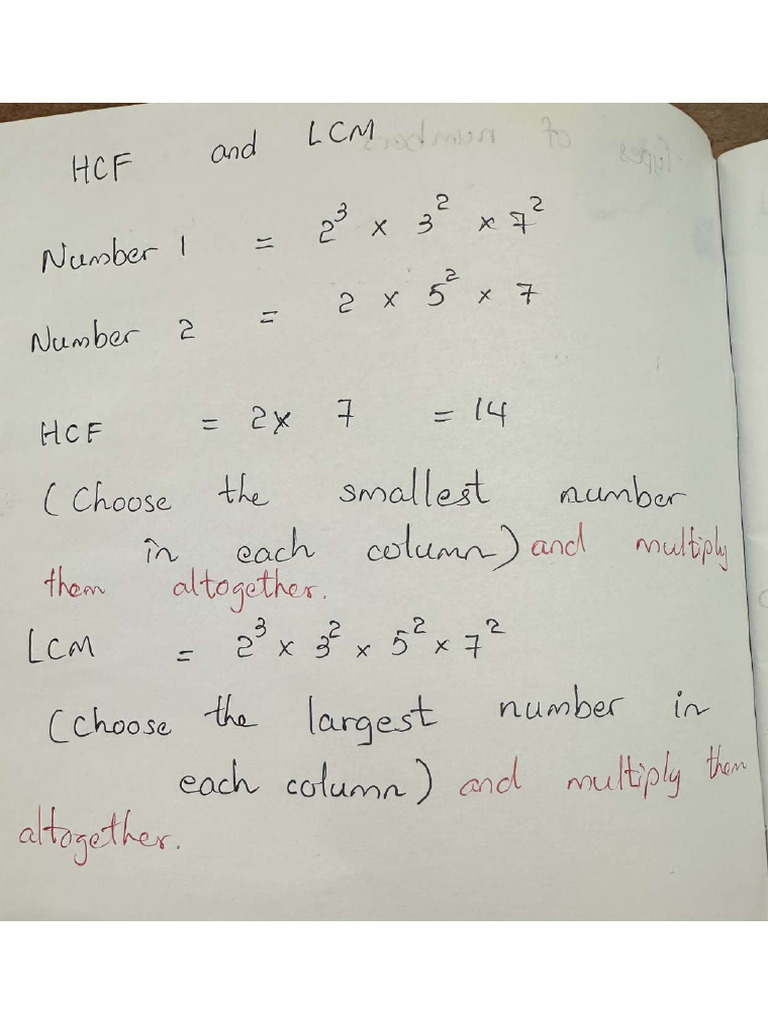 HCF and LCM
Number 1 = 2³ × 3² × 7²
Number 2 = 2 × 5² × 7
HCF = 2 × 7 = 14
(Choose the smallest number
in each column) and multiply
them altogether.
LCM = 2³ × 3² × 5² × 7²
(Choose the largest number in
each column) and multiply them
altogether.
types of numbers